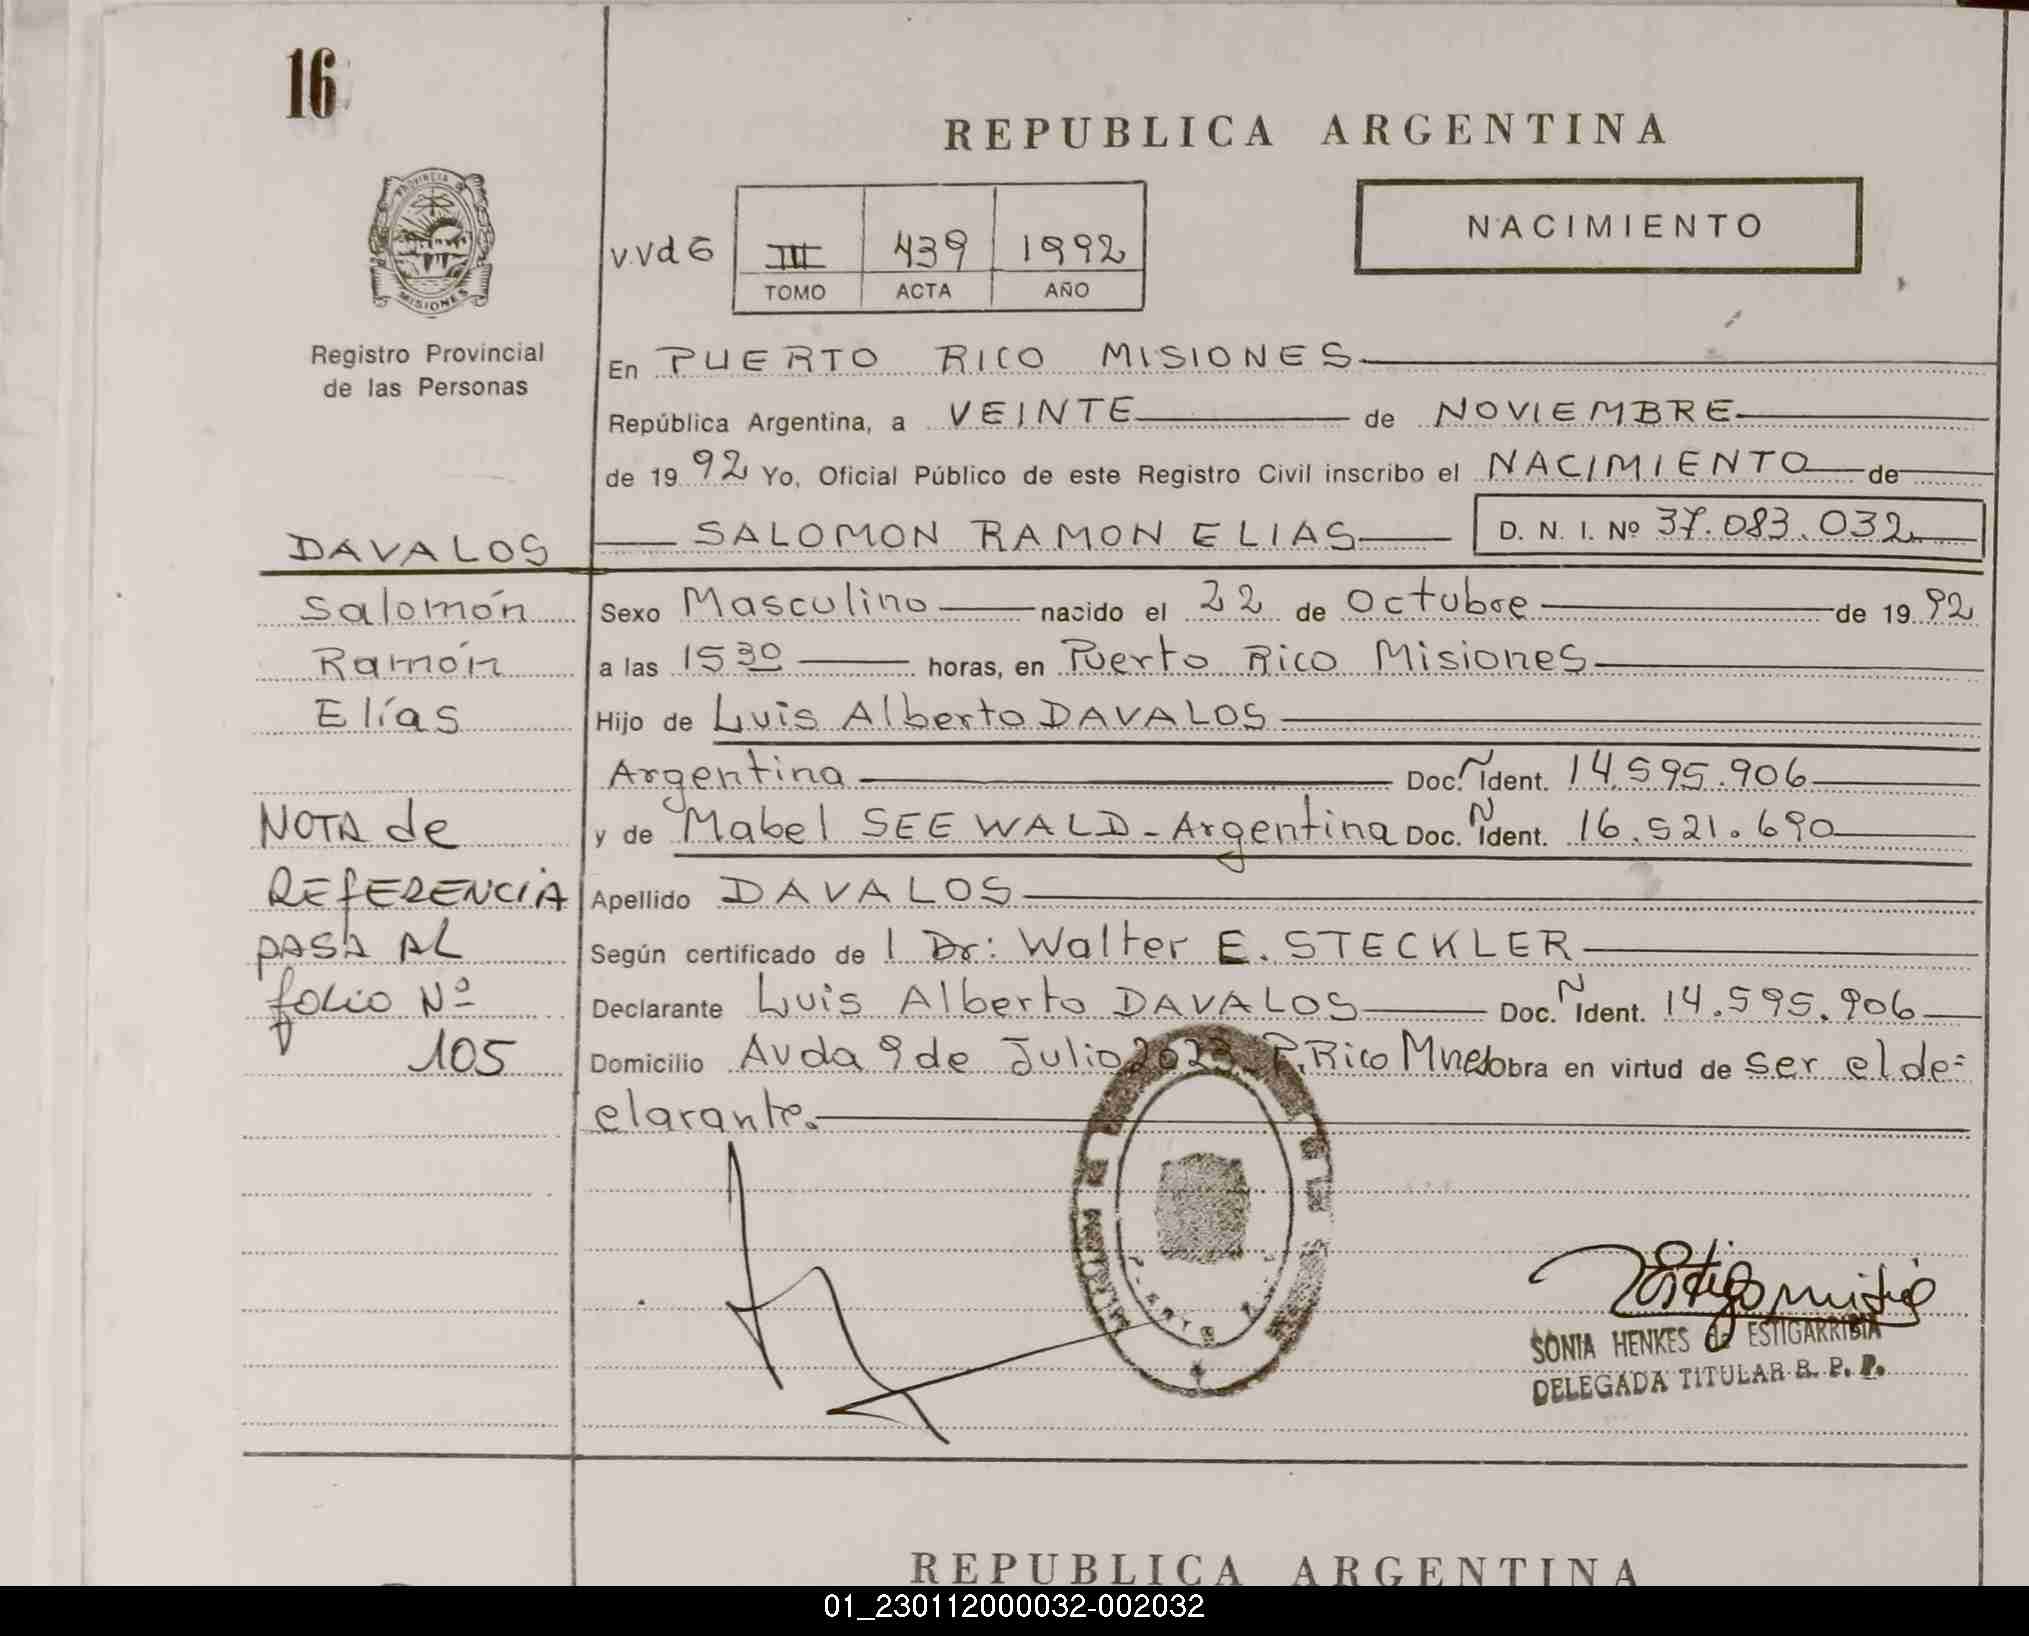 16
REPUBLICA ARGENTINA
PROVINCIA DE
MISIONES
NACIMIENTO
v.vd6 III 439 1992
TOMO ACTA AÑO
Registro Provincial
de las Personas
En PUERTO RICO MISIONES
República Argentina, a VEINTE de NOVIEMBRE
de 1992 Yo, Oficial Público de este Registro Civil inscribo el NACIMIENTO de
DAVALOS SALOMON RAMON ELIAS D. N. I. Nº 37.083.032
Salomón Sexo Masculino nacido el 22 de Octubre de 1992
Ramón a las 15 30 horas, en Puerto Rico Misiones
Elías Hijo de Luis Alberto DAVALOS
Argentina Doc. N Ident. 14.595.906
NOTA de y de Mabel SEEWALD - Argentina Doc. N Ident. 16.521.690
REFERENCIA Apellido DAVALOS
PASA AL Según certificado de l Dr: Walter E. STECKLER
folio Nº Declarante Luis Alberto DAVALOS Doc. N Ident. 14.595.906
105 Domicilio Avda 9 de Julio 2023 P. Rico Mnes Obra en virtud de ser el de=
clarante.
SONIA HENKES de ESTIGARRIBIA
DELEGADA TITULAR R. P. P.
REPUBLICA ARGENTINA
01_230112000032-002032